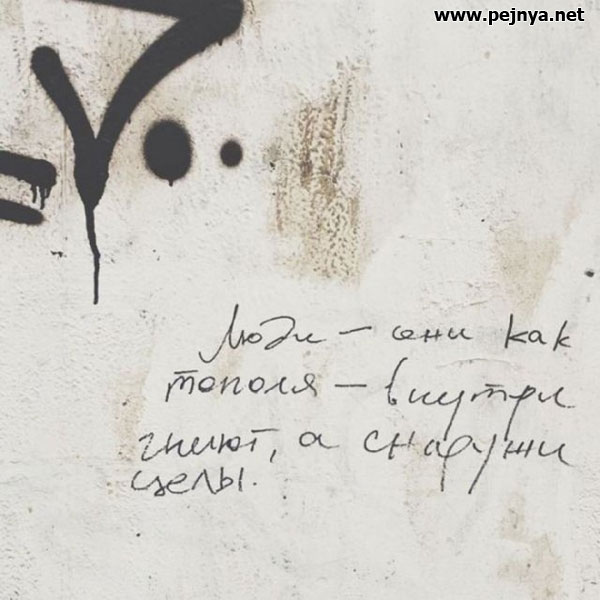 www.pejnya.net
Люди – они как
тополя – внутри
гниют, а снаружи
целы.